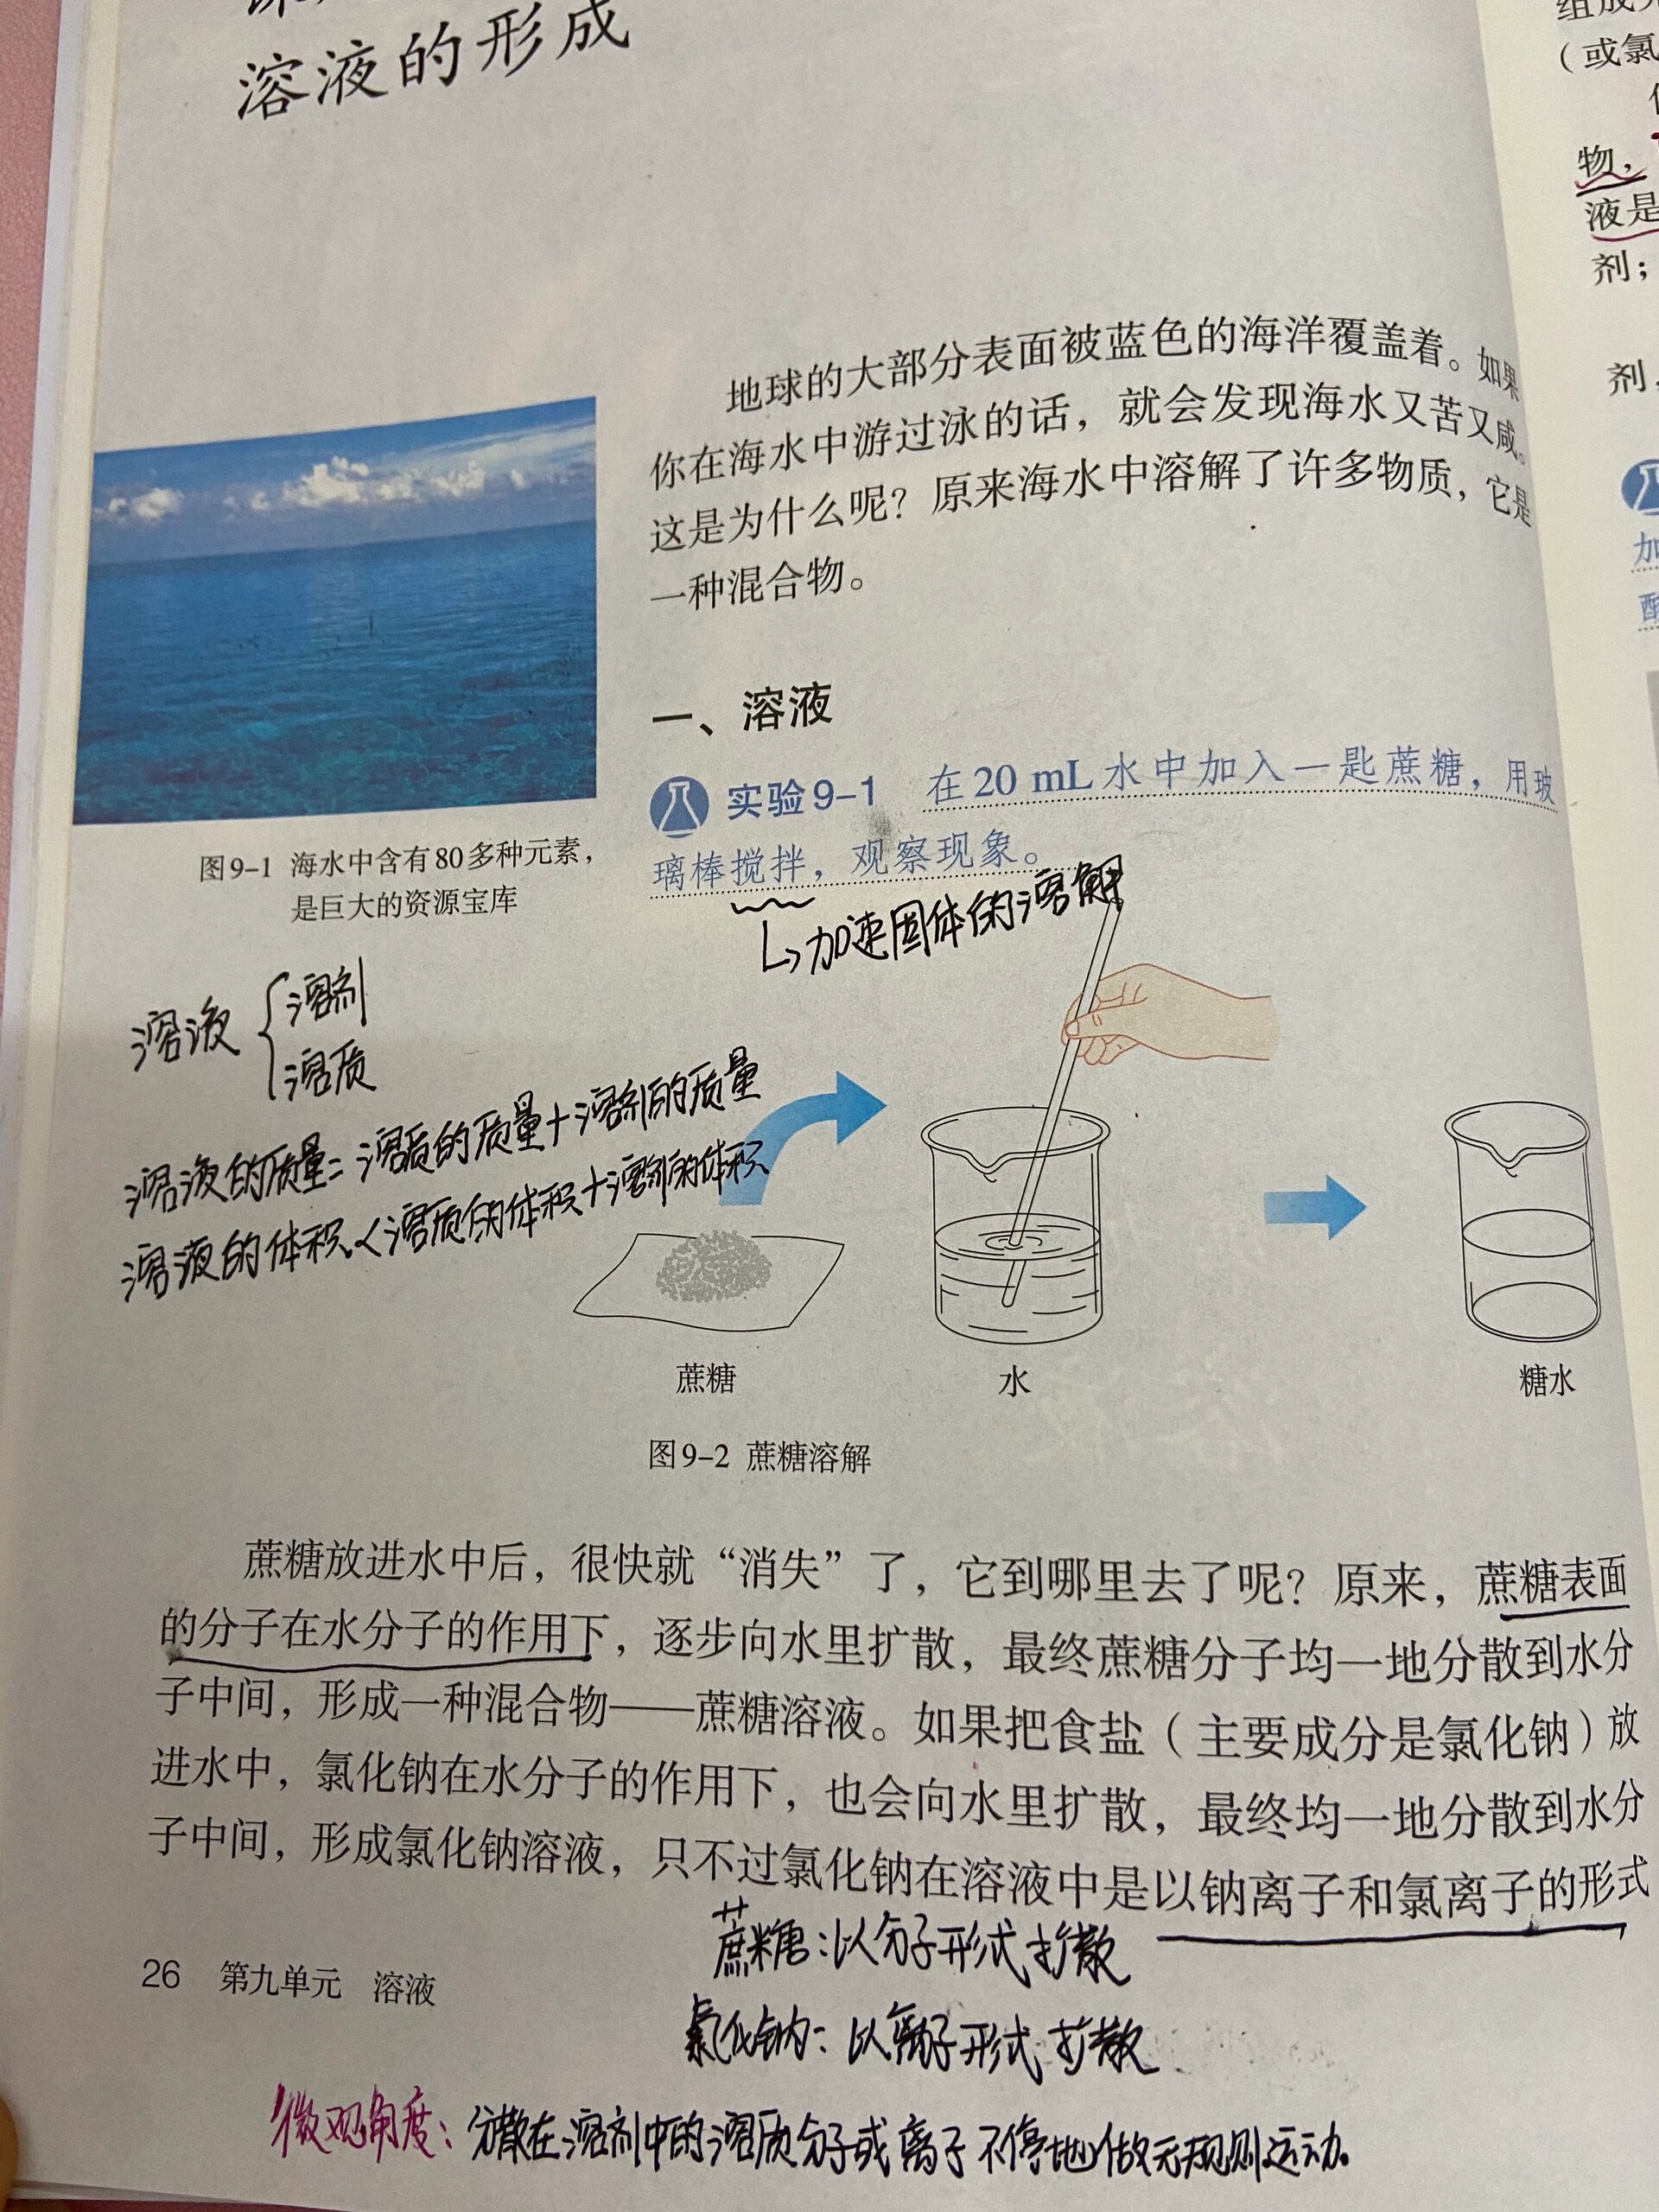 溶液的形成
地球的大部分表面被蓝色的海洋覆盖着。如果
你在海水中游过泳的话，就会发现海水又苦又咸。
这是为什么呢？原来海水中溶解了许多物质，它是
一种混合物。
图9-1 海水中含有80多种元素，
是巨大的资源宝库
一、溶液
实验9-1 在20 mL水中加入一匙蔗糖，用玻
璃棒搅拌，观察现象。
↳加速固体的溶解
溶液{溶剂
溶质
溶液的质量=溶质的质量+溶剂的质量
溶液的体积<溶质的体积+溶剂的体积
蔗糖
水
糖水
图9-2 蔗糖溶解
蔗糖放进水中后，很快就“消失”了，它到哪里去了呢？原来，蔗糖表面
的分子在水分子的作用下，逐步向水里扩散，最终蔗糖分子均一地分散到水分
子中间，形成一种混合物——蔗糖溶液。如果把食盐（主要成分是氯化钠）放
进水中，氯化钠在水分子的作用下，也会向水里扩散，最终均一地分散到水分
子中间，形成氯化钠溶液，只不过氯化钠在溶液中是以钠离子和氯离子的形式
蔗糖：以分子形式扩散
氯化钠：以离子形式扩散
26 第九单元 溶液
微观角度：分散在溶剂中的溶质分子或离子不停地做无规则运动。
（或氯
物，
液是
剂；
剂，
加